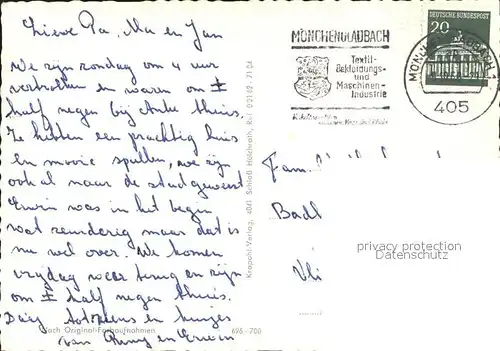 Lieve Pa, Ma en Jan
We zijn zondag om 4 uur
vertrokken en waren om ±
half negen bij thuis.
Ze hebben een prachtig huis
en mooie spullen, we zijn
ook al naar de stad geweest
Erwin was in het begin
wat zeurderig maar dat is
nu wel over. We komen
vrijdag weer terug en zijn
om ± half negen thuis.
Daag tot ziens en kusjes
van en Erwin
Nach Original-Farbaufnahmen
696-700
Krapohl-Verlag, 4041 Schloß Hülchrath, Ruf 021 82-71 04
MÖNCHENGLADBACH
Textil-
Bekleidungs-
und
Maschinen-
Industrie
DEUTSCHE BUNDESPOST
20
405
Fam.
Badh
Vli
privacy protection
Datenschutz